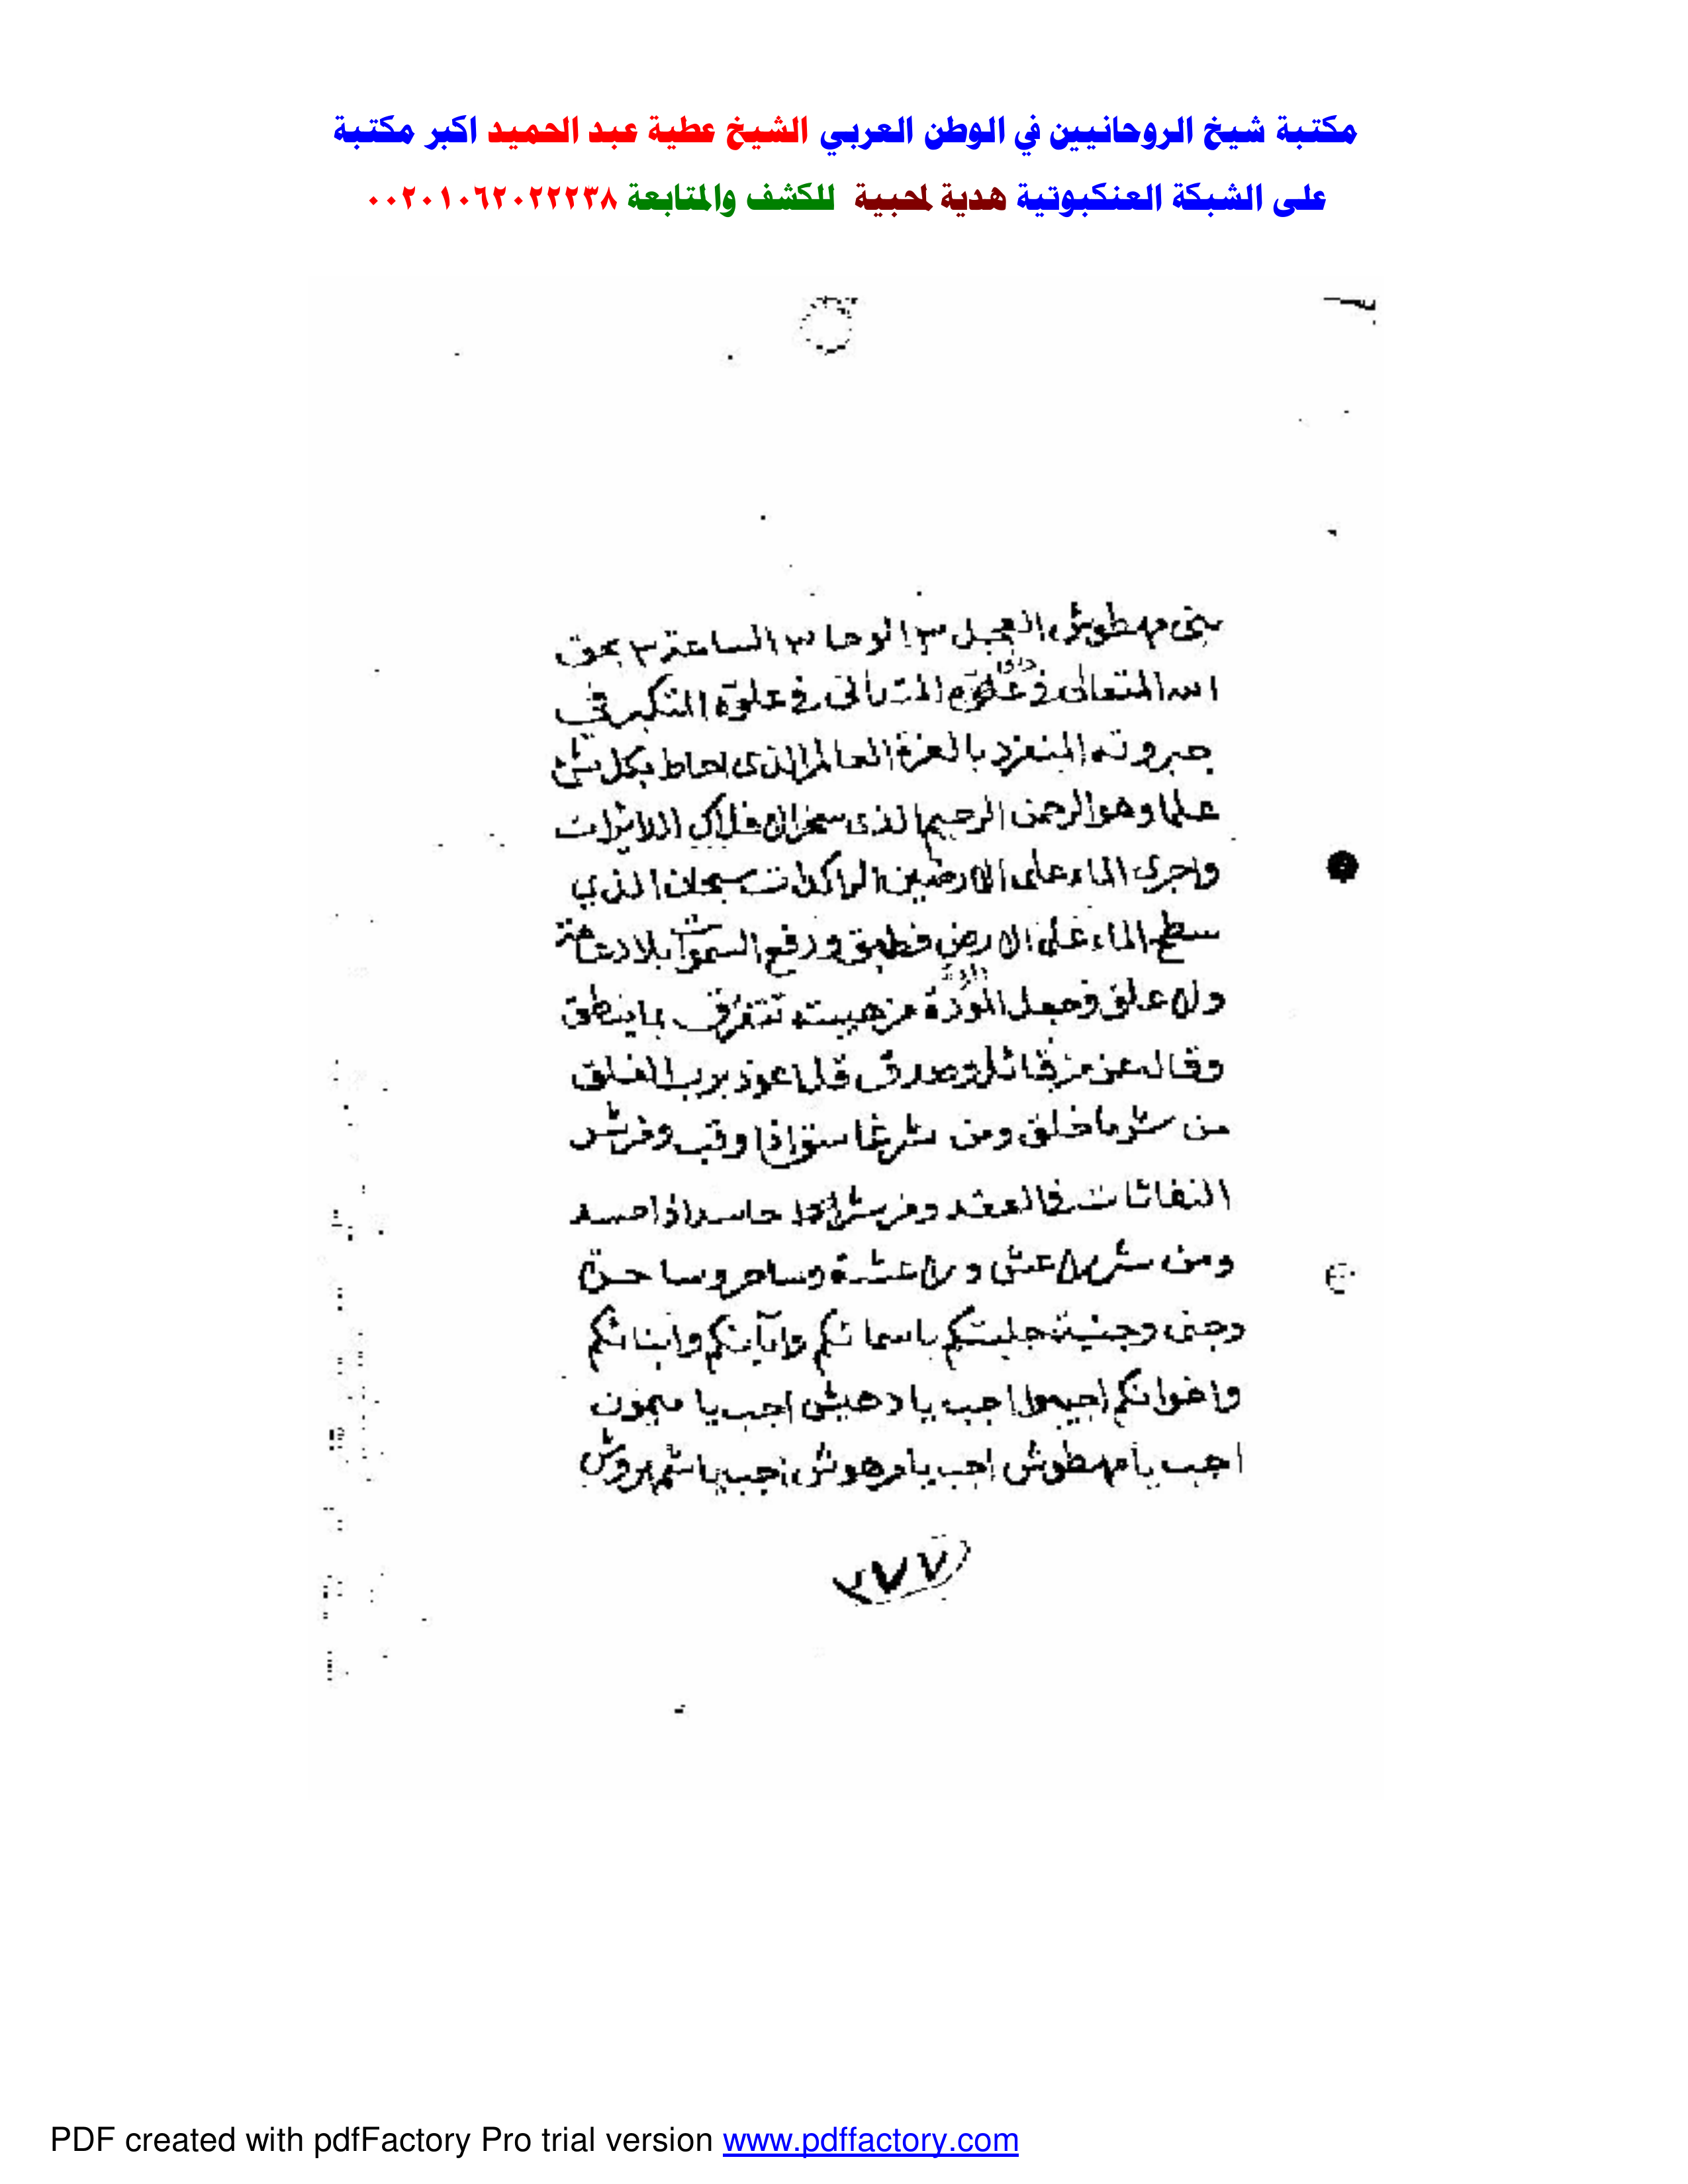 مكتبة شيخ الروحانيين في الوطن العربي الشيخ عطية عبد الحميد اكبر مكتبة
على الشبكة العنكبوتية هدية لمحبية للكشف والمتابعة ٠٠٢٠١٠٦٢٠٢٢٢٣٨
بنى مهطوش العجل ٣ الوحا ٣ الساعة ٣ بحق
الله المتعالى في المتكبر في
جبروته المنفرد بالعزة العالم الذى احاط بكل شئ
علما وهو الرحمن الرحيم الذى سخر الافلاك الدايرات
واجرى الماء على الارضين الراكدات سبحان الذي
سطح الماء على الارض فطبق ورفع السموات بلا دعامة
ولا علق فجعل هيبته بما ينطق
وقال عز من قائل وصدق قل اعوذ برب الفلق
من شر ما خلق ومن شر غاسق اذا وقب ومن شر
النفاثات فى العقد ومن شر حاسد اذا حسد
ومن شر وساحر وساحرة
وجنى وجنية جلبتكم باسمائكم وابآيكم وابنائكم
واخوانكم اجيبوا اجب يا دهيش اجب يا ميمون
اجب يا مهطوش اجب يا دهوش اجب يا شمهروش
٢٧٧
PDF created with pdfFactory Pro trial version www.pdffactory.com